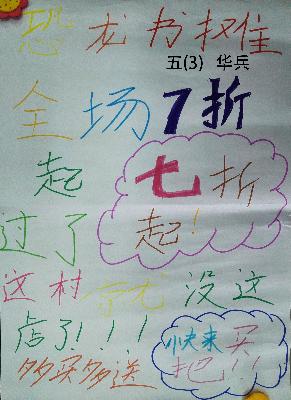 恐龙书摊
五(3) 华兵
全场7折
起 七折
过了 起!
这村就没这
店了!!! 快来买
多买多送 把!!